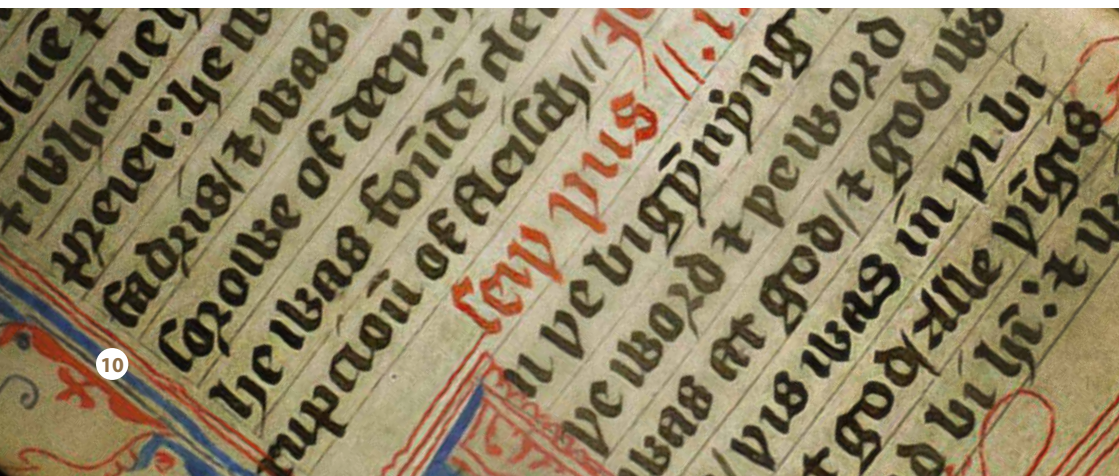 ⁊ whāne h
þeier: he w
fadris/ ⁊ was
sorowe of deeþ:
he was foūdē de
rupcioū of fleisch//
seiþ þus //.
n þe bigȳnyng
þe word ⁊ þe word
was at god/ ⁊ god was
/ þis was in þi bi
t god/ Alle þīgis
d bi hī: ⁊ w
10